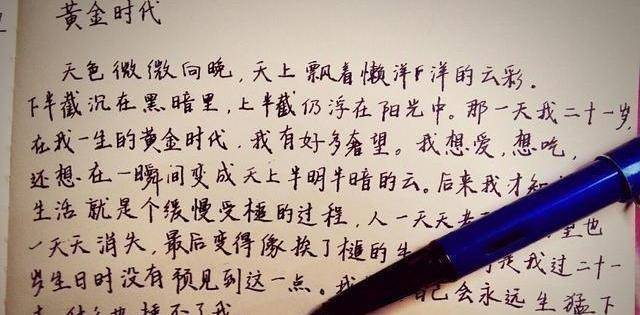 黄金时代
天色微微向晚，天上飘着懒洋洋的云彩.
下半截沉在黑暗里，上半截仍浮在阳光中。那一天我二十一岁，
在我一生的黄金时代，我有好多奢望。我想爱，想吃，
还想在一瞬间变成天上半明半暗的云。后来我才知
生活就是个缓慢受槌的过程，人一天天老 望也
一天天消失，最后变得像挨了槌的牛 是我过二十一
岁生日时没有预见到这一点。我 己会永远生猛下
什么 捶不了我